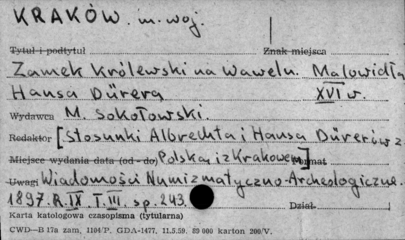 KRAKÓW. m. woj.
Tytuł i podtytuł Znak miejsca
Zamek Królewski na Wawelu. Malowidła
Hansa Dürera XVI w.
Wydawca M. Sokołowski.
Redaktor [Stosunki Albrechta i Hansa Dürerów z
Miejsce wydania data (od - do) Polską i z Krakowem] Format
Uwagi Wiadomości Numizmatyczno-Archeologiczne.
1897. R. IX. T. III. sp. 243. Dział
Karta katalogowa czasopisma (tytularna)
CWD—B 17a zam, 1104/P. GDA-1477, 11.5.59. 80 000 karton 200/V.